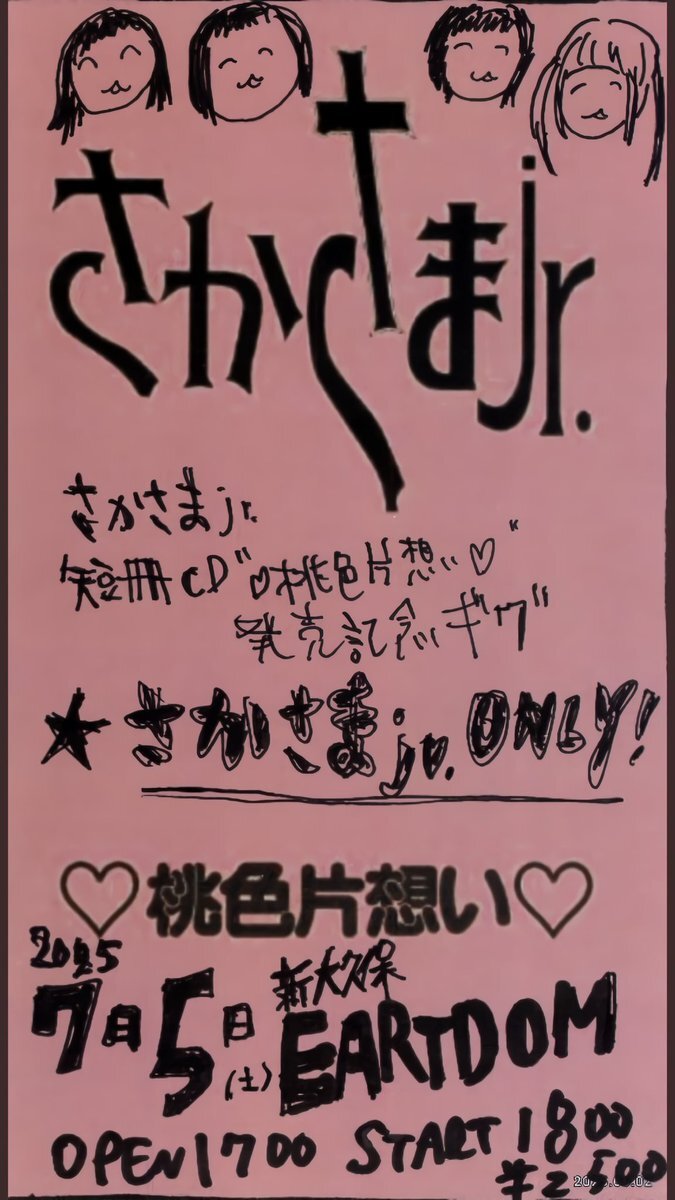 さかさまjr.
さかさまjr.
短冊CD"♡桃色片想い♡"
発売記念ギグ"
★さかさまjr.ONLY!
♡桃色片想い♡
2025
7月5日(土)
新大久保
EARTDOM
OPEN1700 START1800
¥2,500